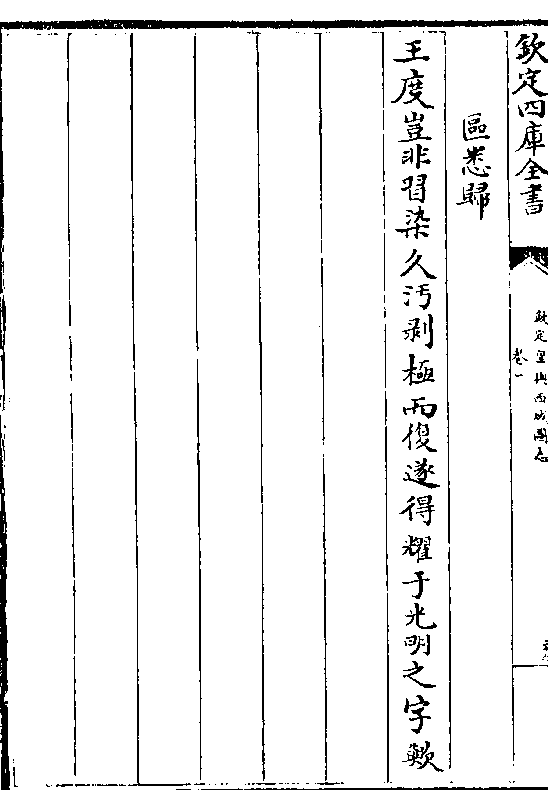 欽定四庫全書
欽定皇輿西域圖志
卷一
區悉歸
王度豈非習染久汚剥極而復遂得耀于光明之字歟